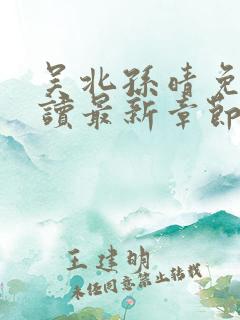 吴北孙晴免
讀最新章節
王建明
未经同意禁止转载